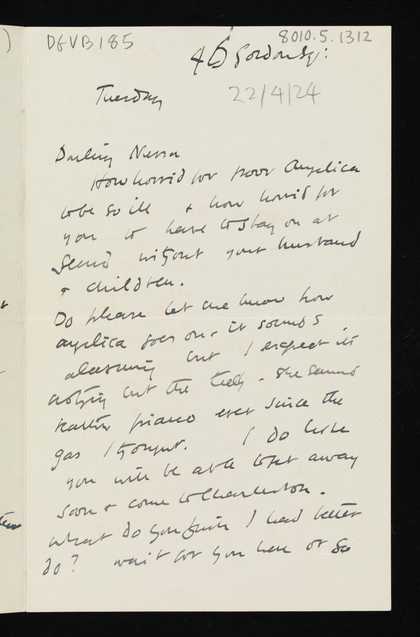 DGVB185
8010.5.1312
46 Gordon Sq:
Tuesday
22/4/24
Darling Nessa
How horrid for poor Angelica
to be so ill & how horrid for
you to have to stay on at
Seend without your husband
& children.
Do please let me know how
Angelica goes on & it sounds
alarming but I expect it's
nothing but the teeth. She seemed
rather piano ever since the
gas I thought. I do hope
you will be able to get away
soon & come to Charleston.
What do you think I had better
do? wait for you here or go